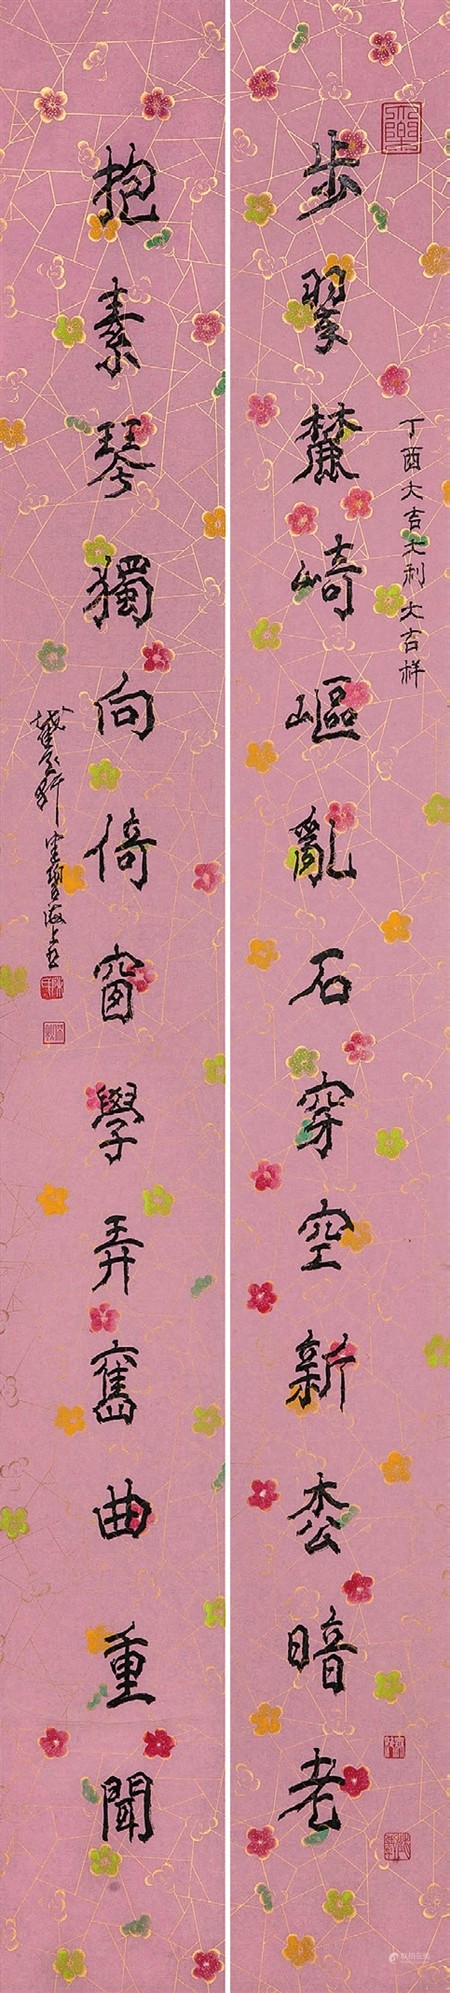 步翠麓崎嶇亂石穿空新枩暗老
丁酉大吉大利大吉祥
抱素琴獨向倚窗學弄舊曲重聞